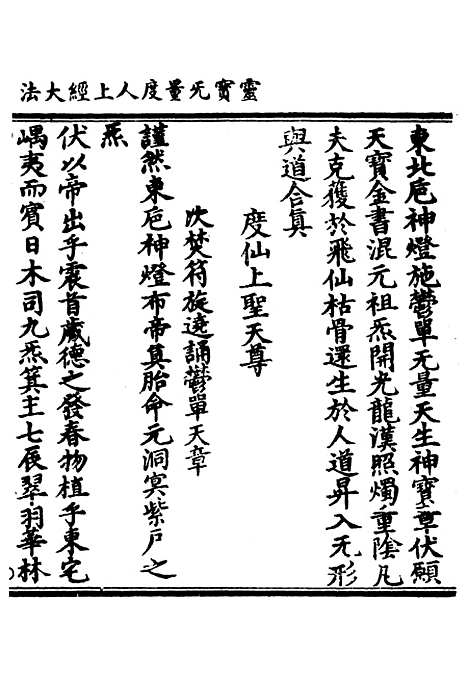 靈寳无量度人上經大法
東北卮神燈施鬱單无量天生神寳章伏願
天寳金書混元祖炁開光龍漢照燭重陰凡
夫克獲於飛仙枯骨還生於人道昇入无形
與道合眞
度仙上聖天尊
次焚符旋遶誦鬱單天章
謹然東卮神燈布帝眞胎命元洞冥紫戸之
炁
伏以帝出乎震首蔵德之發春物植乎東宅
嵎夷而賓日木司九炁箕主七辰翠羽華林